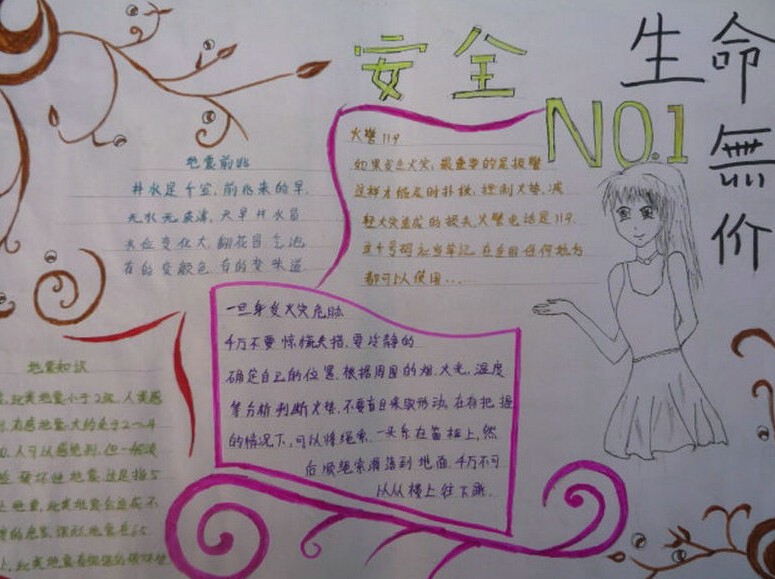 安全
NO.1
生命
無价
地震前兆
井水是个宝,前兆来的早.
无水
天旱井水冒
水位变化大,翻花冒气泡
有的变颜色 有的变味道
火警119
如果发生火灾,最重要的是报警
这样才能及时扑救,控制火势,减
轻火灾造成的损失,火警电话是119.
这个号码应当牢记,在全国任何地方
都可以使用...
一旦身受火灾危胁
千万不要惊慌失措,要冷静的
确定自己的位置.根据周围的烟.火光,温度
等分析判断火势,不要盲目采取形动,在有把握
的情况下,可以将绳索,一头系在窗框上,然
后顺绳索滑落到地面,千万不可
以从楼上往下跳.
地震知识
地震小于2级.人类感
有感地震,大约是于2~4
人可以感觉到,但一般
破坏性地震,这是指5
上地震,